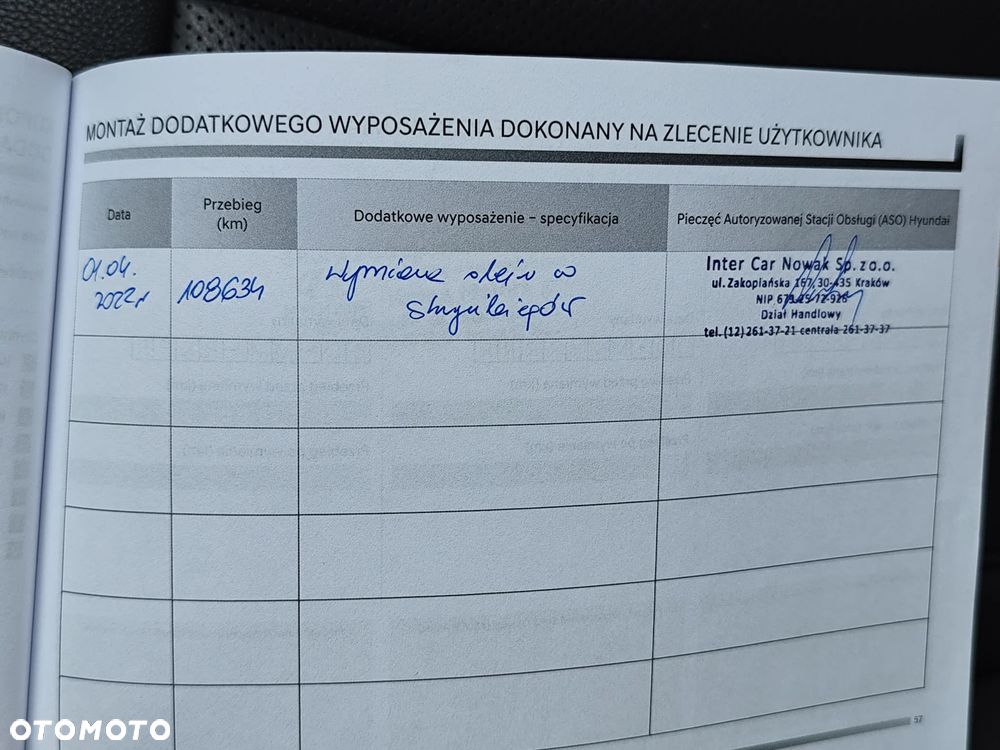 MONTAŻ DODATKOWEGO WYPOSAŻENIA DOKONANY NA ZLECENIE UŻYTKOWNIKA
Data
Przebieg
(km)
Dodatkowe wyposażenie – specyfikacja
Pieczęć Autoryzowanej Stacji Obsługi (ASO) Hyundai
01.04.
2022r
108634
Wymiana oleju w
skrzyni biegów
Inter Car Nowak Sp. z o.o.
ul. Zakopiańska 167, 30-435 Kraków
NIP
Dział Handlowy
tel. (12) 261-37-21 centrala 261-37-37
57
OTOMOTO